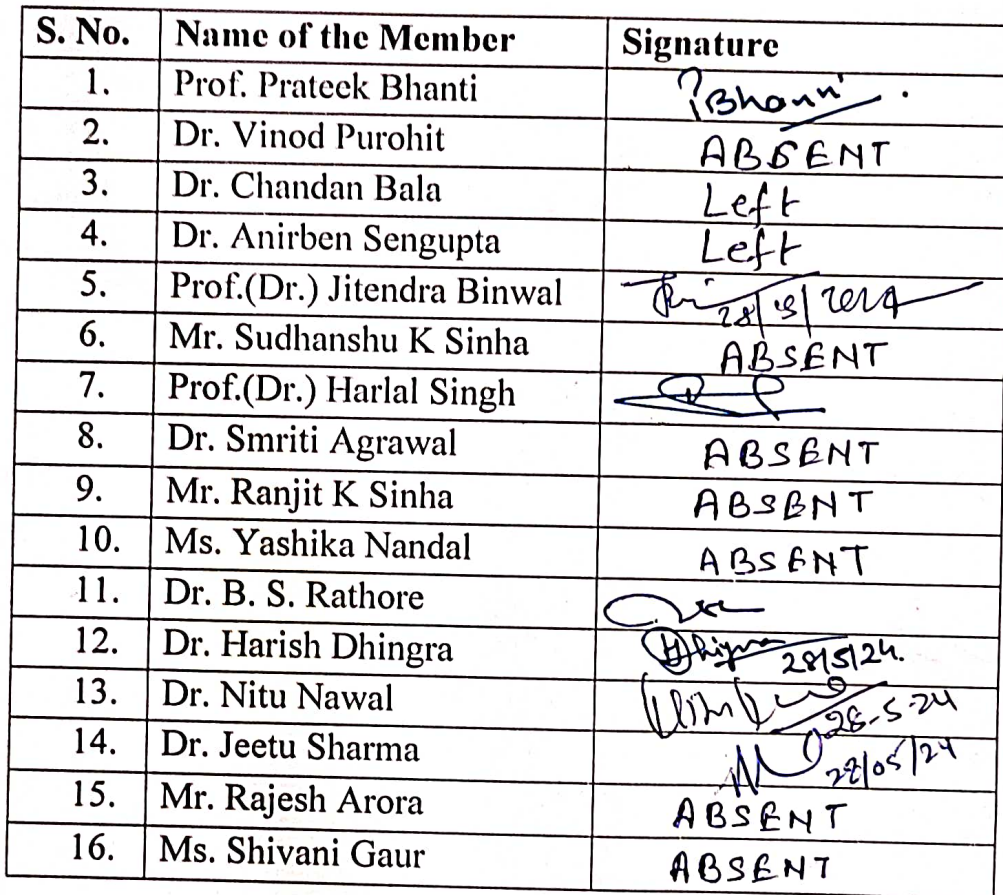 S. No. Name of the Member Signature
1. Prof. Prateek Bhanti PBhanti
2. Dr. Vinod Purohit ABSENT
3. Dr. Chandan Bala Left
4. Dr. Anirben Sengupta Left
5. Prof.(Dr.) Jitendra Binwal 28/5/2024
6. Mr. Sudhanshu K Sinha ABSENT
7. Prof.(Dr.) Harlal Singh
8. Dr. Smriti Agrawal ABSENT
9. Mr. Ranjit K Sinha ABSENT
10. Ms. Yashika Nandal ABSENT
11. Dr. B. S. Rathore
12. Dr. Harish Dhingra Dhingra 28/5/24.
13. Dr. Nitu Nawal 28-5-24
14. Dr. Jeetu Sharma 28/05/24
15. Mr. Rajesh Arora ABSENT
16. Ms. Shivani Gaur ABSENT